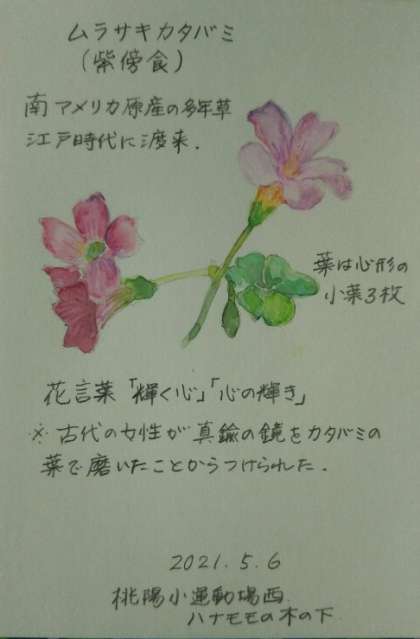 ムラサキカタバミ
(紫傍食)
南アメリカ原産の多年草
江戸時代に渡来.
葉は心形の
小葉3枚
花言葉「輝く心」「心の輝き」
※古代の女性が真鍮の鏡をカタバミの
葉で磨いたことからつけられた.
2021.5.6
桃陽小運動場西
ハナモモの木の下